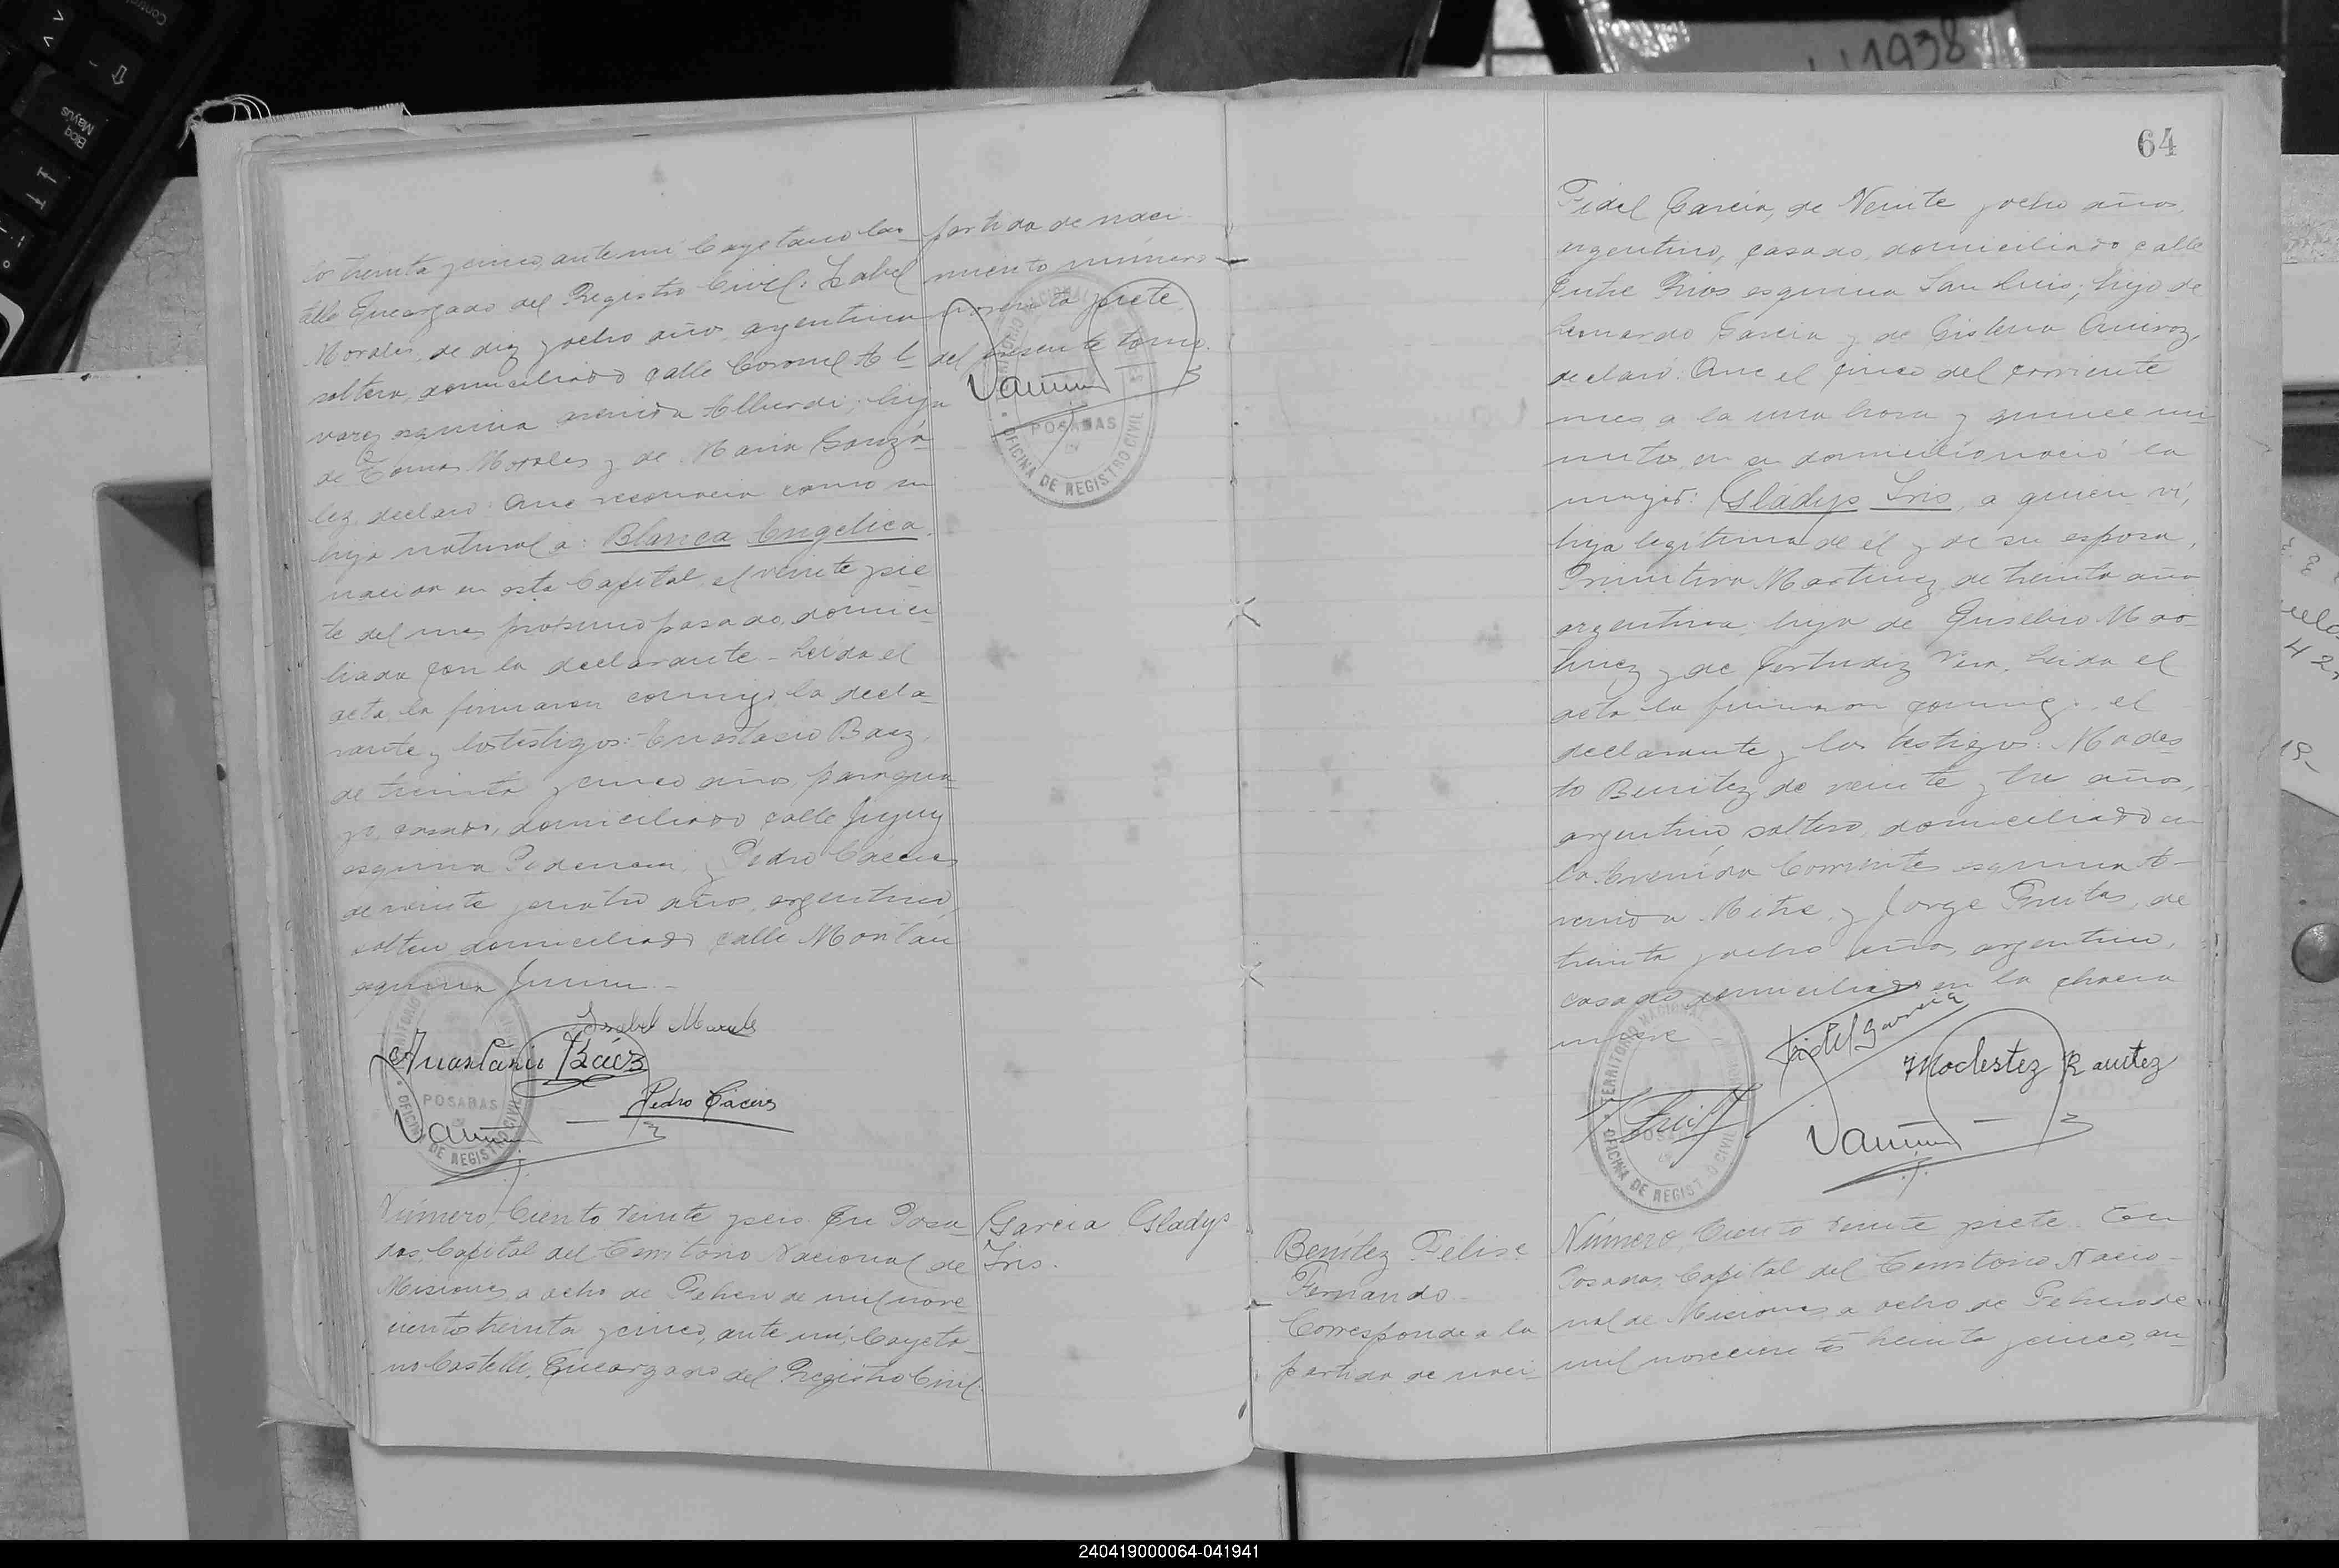 tos treinta y cinco, ante mi Cayetano Cas-
telli Encargado del Registro Civil: Isabel
Morales, de diez y ocho años, argentina
soltera, domiciliada calle Coronel Al-
varez esquina avenida Alberdi; hija
de Tomas Morales y de Maria Gonzá-
lez, declaró: Que reconocia como su
hija natural a: Blanca Angelica.
nacida en esta Capital, el veinte y sie
te del mes próximo pasado, domici
liada con la declarante - Leida el
acta, la firmaron conmigo la decla-
rante y los testigos: Anastasio Baez,
de treinta y cinco años, paragua-
yo, casado, domiciliado calle Jujuy
esquina y Pedro Cáceres
de veinte y cuatro años, argentino,
soltero domiciliado calle
esquina Junin -
partida de naci-
miento número
noventa y siete
del presente tomo.
TERRITORIO NACIONAL DE MISIONES
POSADAS
OFICINA DE REGISTRO CIVIL
Isabel Morales
Anastacio Báez
Pedro Cáceres
POSADAS
OFICINA DE REGISTRO CIVIL
Número, Ciento Veinte y seis. En Posa
das, Capital del Territorio Nacional de
Misiones, a ocho de Febrero de mil nove-
cientos treinta y cinco, ante mi, Cayeta-
no Castelli, Encargado del Registro Civil:
Garcia Gladys
Iris.
64
Fidel Garcia, de Veinte y ocho años,
argentino, casado, domiciliado calle
Entre Rios esquina San Luis; hijo de
Leonardo Garcia y de Quiroz,
declaró: Que el cinco del corriente
mes a la una hora y quince mi-
nutos, en su domicilio nació la
mujer: Gladys Iris, a quien vi,
hija legitima de él y de su esposa,
Primitiva Martinez, de treinta años
argentina, hija de Eusebio Mar-
tinez y de Gertrudiz Vera. Leida el
acta la firmaron conmigo, el
declarante y los testigos: Modes
to Benitez de veinte y tres años,
argentino, soltero, domiciliado en
la Avenida Corrientes esquina A-
venida Mitre, y Jorge Freitas, de
treinta y ocho años, argentino,
casado domiciliado en la chacra
nueve
Fidel Garcia
Modestez Banitez
TERRITORIO NACIONAL
OFICINA DE REGISTRO CIVIL
Benítez Felise
Fernando.
Corresponde a la
partida de naci-
Número, Ciento Veinte y siete. En
Posadas, Capital del Territorio Nacio-
nal de Misiones, a ocho de Febrero de
mil novecientos treinta y cinco, an-
1938
Bloq
Mayús
240419000064-041941